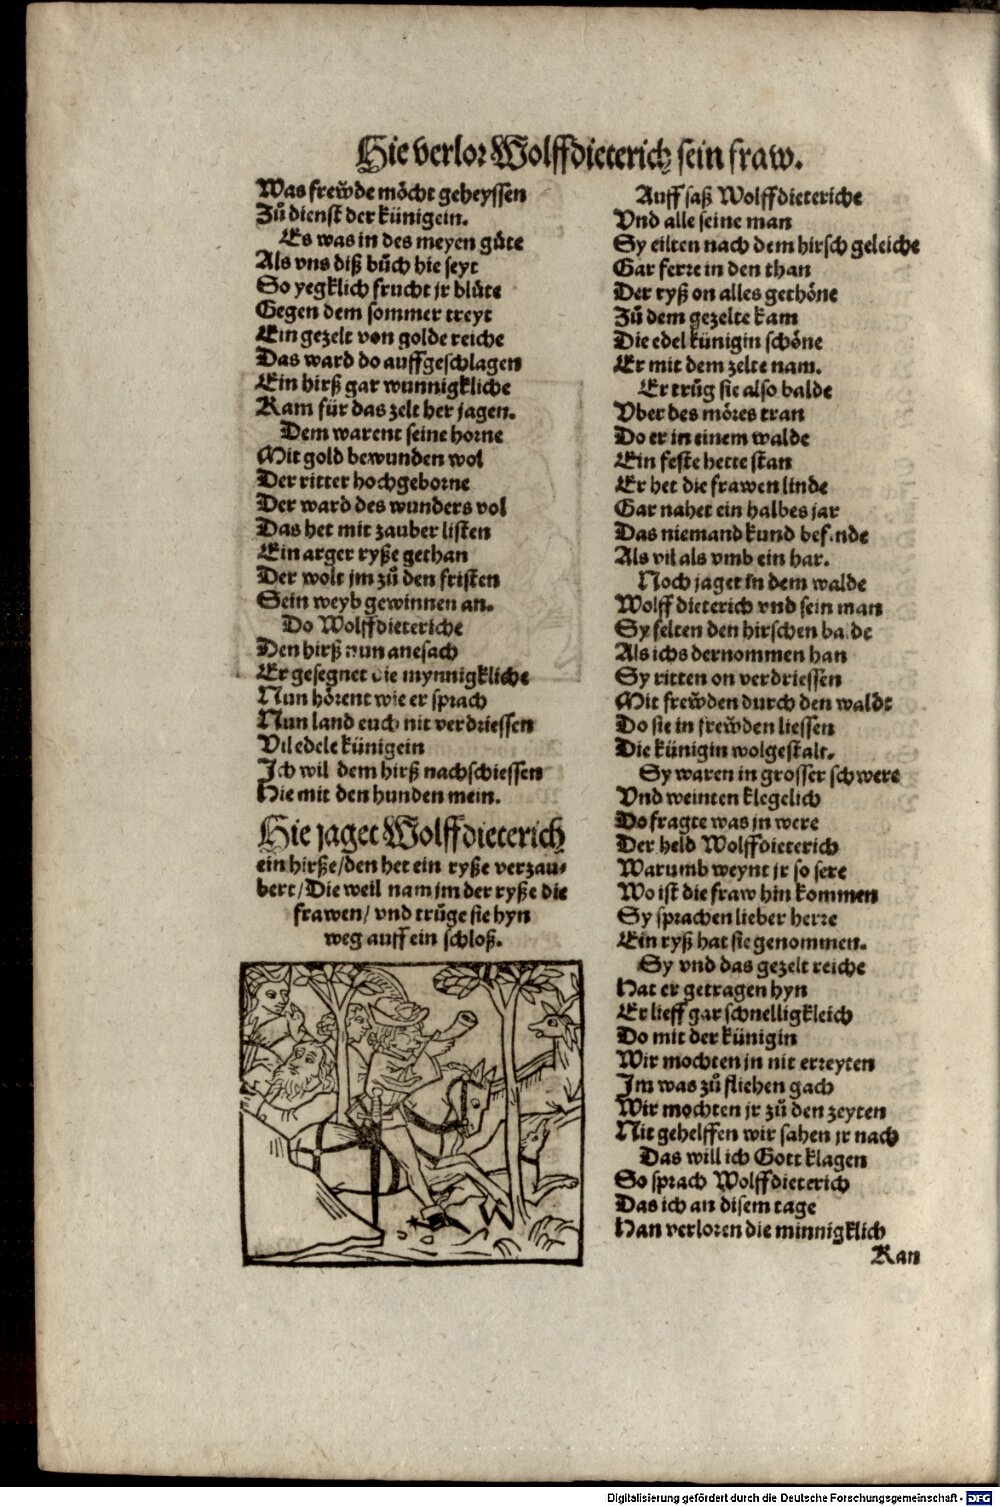 Hie verlor Wolffdieterich sein fraw.
Was frewde möcht geheyssen
Zů dienst der künigein.
Es was in des meyen güte
Als vns diß bůch hie seyt
So yegklich frucht jr blüte
Gegen dem sommer treyt
Ein gezelt von golde reiche
Das ward do auffgeschlagen
Ein hirß gar wunnigkliche
Kam für das zelt her jagen.
Dem warent seine horne
Mit gold bewunden wol
Der ritter hochgeborne
Der ward des wunders vol
Das het mit zauber listen
Ein arger ryße gethan
Der wolt jm zů den fristen
Sein weyb gewinnen an.
Do Wolffdieteriche
Den hirß nun anesach
Er gesegnet die mynnigkliche
Nun hörent wie er sprach
Nun land euch nit verdriessen
Vil edele künigein
Ich wil dem hirß nachschiessen
Hie mit den hunden mein.
Hie jaget Wolffdieterich
ein hirße/den het ein ryße verzau-
bert/Die weil nam jm der ryße die
frawen/ vnd trůge sie hyn
weg auff ein schloß.
Auff saß Wolffdieteriche
Vnd alle seine man
Sy eilten nach dem hirsch geleiche
Gar ferre in den than
Der ryß on alles gethöne
Zů dem gezelte kam
Die edel künigin schöne
Er mit dem zelte nam.
Er trůg sie also balde
Vber des möres tran
Do er in einem walde
Ein feste hette stan
Er het die frawen linde
Gar nahet ein halbes jar
Das niemand kund befinde
Als vil als vmb ein har.
Noch jaget in dem walde
Wolff dieterich vnd sein man
Sy felten den hirschen balde
Als ichs vernommen han
Sy ritten on verdriessen
Mit frewden durch den walde
Do sie in frewden liessen
Die künigin wolgestalt.
Sy waren in grosser schwere
Vnd weinten klegelich
Do fragte was jn were
Der held Wolffdieterich
Warumb weynt jr so sere
Wo ist die fraw hin kommen
Sy sprachen lieber herre
Ein ryß hat sie genommen.
Sy vnd das gezelt reiche
Hat er getragen hyn
Er lieff gar schnelligkleich
Do mit der künigin
Wir mochten jn nit erreyten
Im was zů fliehen gach
Wir mochten jr zů den zeyten
Nit gehelffen wir sahen jr nach
Das will ich Gott klagen
So sprach Wolffdieterich
Das ich an disem tage
Han verloren die minnigklich
Kan
Digitalisierung gefördert durch die Deutsche Forschungsgemeinschaft - DFG